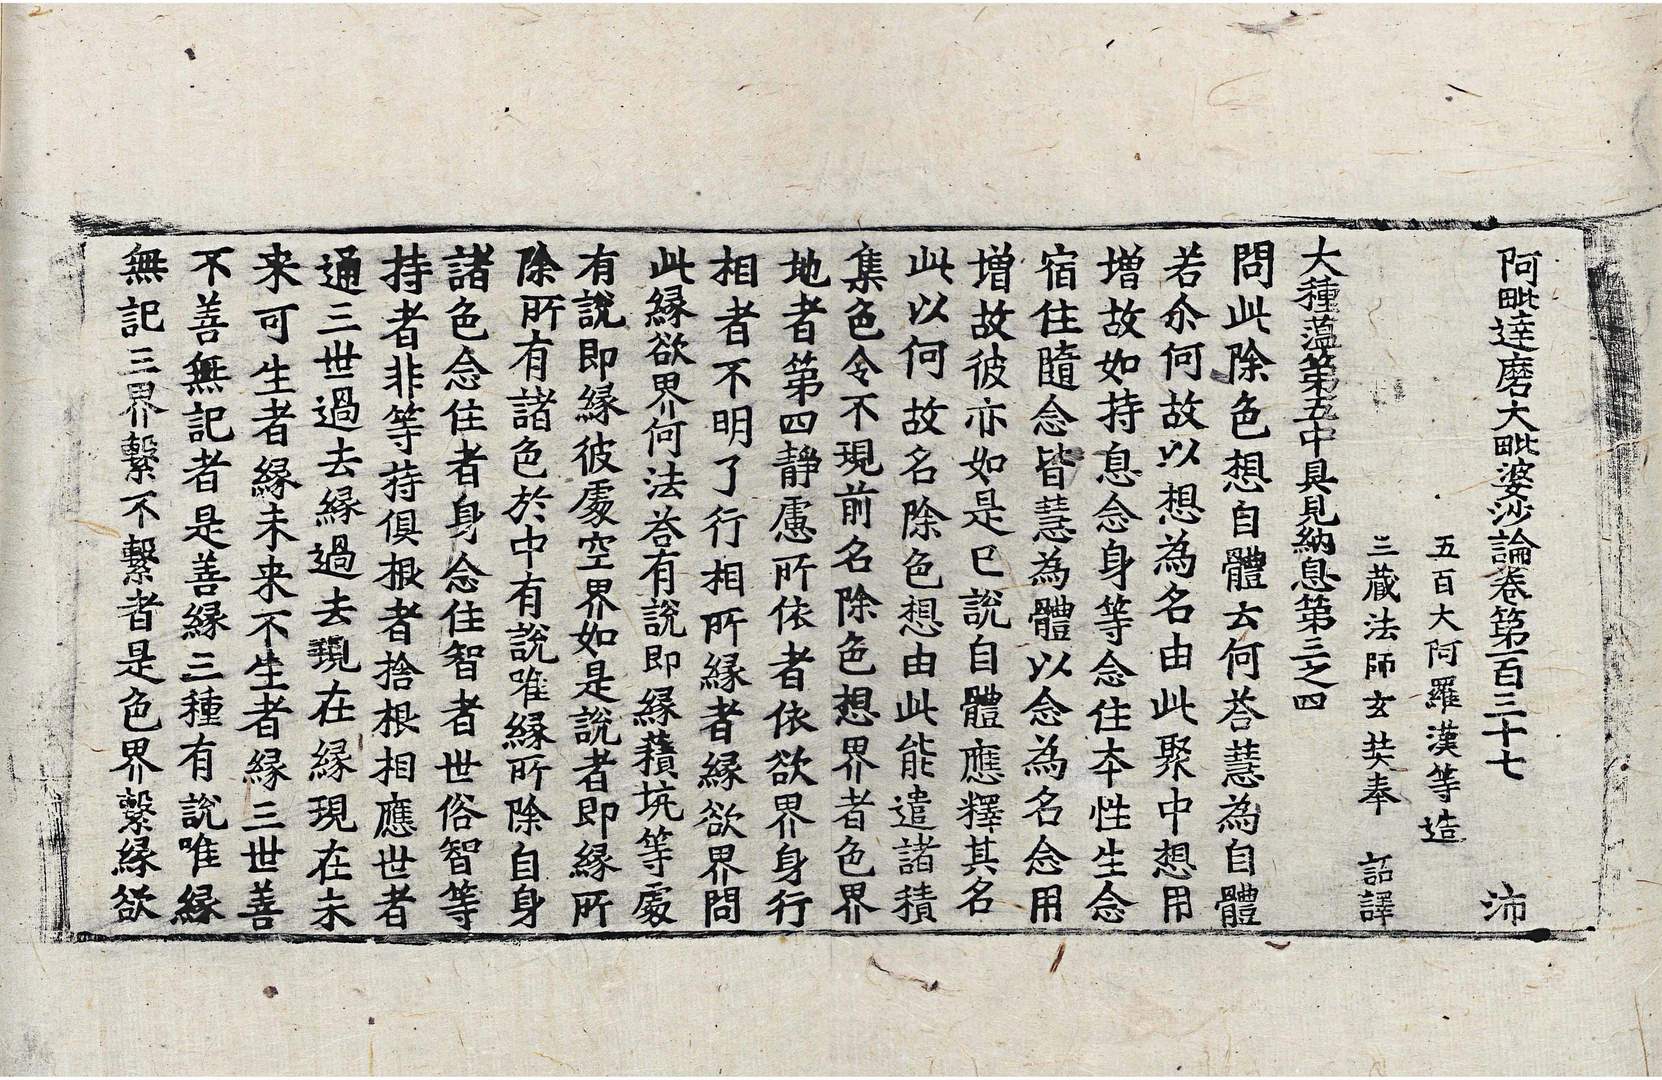 阿毗達磨大毗婆沙論卷第一百三十七　沛
五百大阿羅漢等造
三藏法師玄奘奉　詔譯
大種蘊第五中具見納息第三之四
問此除色想自體云何荅慧為自體
若尒何故以想為名由此聚中想用
增故如持息念身等念住本性生念
宿住隨念皆慧為體以念為名念用
增故彼亦如是已說自體應釋其名
此以何故名除色想由此能遣諸積
集色令不現前名除色想界者色界
地者第四靜慮所依者依欲界身行
相者不明了行相所緣者緣欲界問
此緣欲界何法荅有說即緣藉坑等處
有說即緣彼處空界如是說者即緣所
除所有諸色於中有說唯緣所除自身
諸色念住者身念住智者世俗智等
持者非等持俱根者捨根相應世者
通三世過去緣過去現在緣現在未
来可生者緣未来不生者緣三世善
不善無記者是善緣三種有說唯緣
無記三界繫不繫者是色界繫緣欲